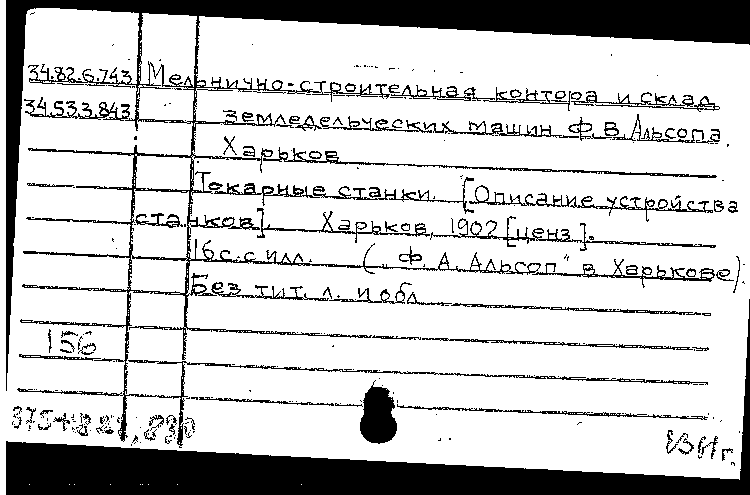 34.82.6.743 Мельнично-строительная контора и склад
34.533.843 земледельческих машин Ф.В.Альсопа.
Харьков
Токарные станки. [Описание устройства
станков]. Харьков, 1902 [ценз].
16с. с илл. („Ф.А.Альсоп" в Харькове).
Без тит. л. и обл
156